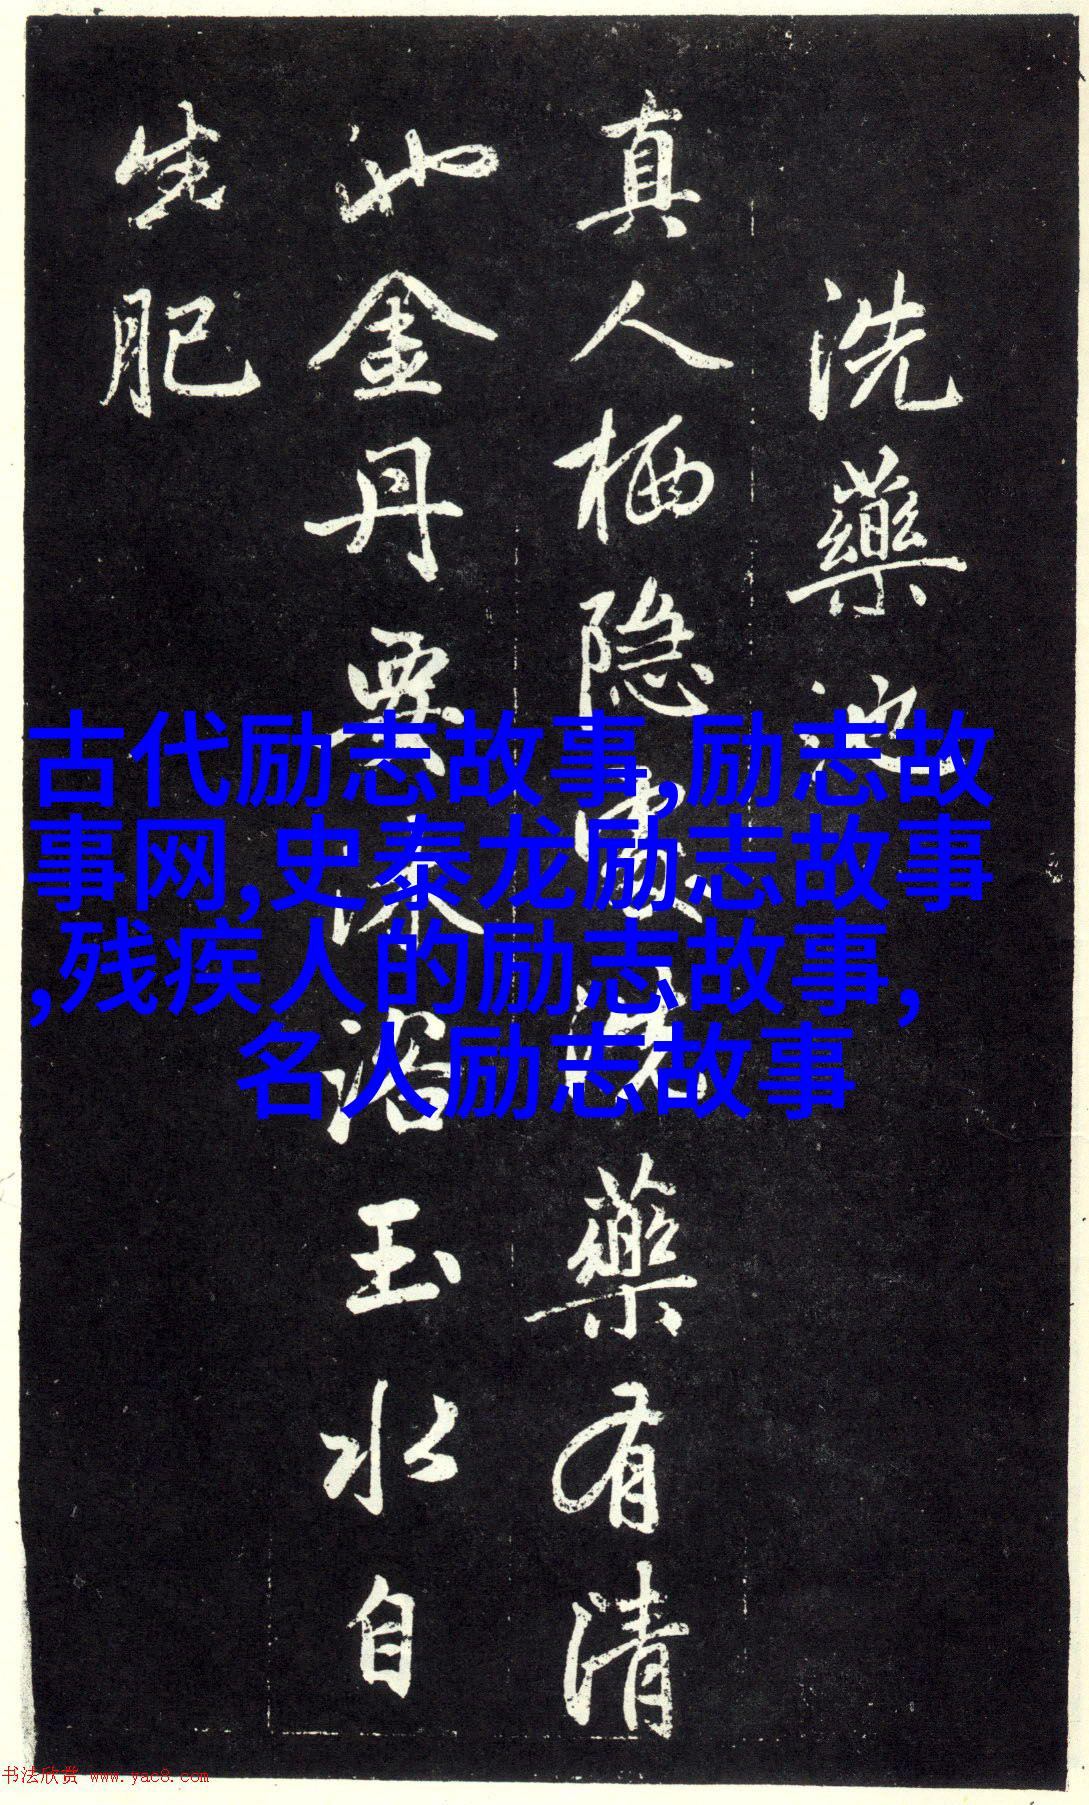 洗藥池
真人栖隐洗藥有清
池金丹要沐浴玉水自
生肥
古代励志故事,励志故
事网,史泰龙励志故事
,残疾人的励志故事,
名人励志故事
书法欣赏 www.yac8.com